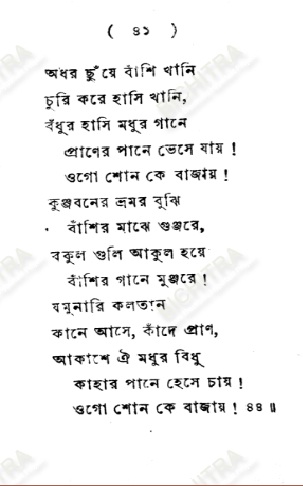 ( ৪১ )
অধর ছুঁয়ে বাঁশি খানি
চুরি করে হাসি খানি,
বঁধুর হাসি মধুর গানে
প্রাণের পানে ভেসে যায় !
ওগো শোন কে বাজায় !
কুঞ্জবনের ভ্রমর বুঝি
বাঁশির মাঝে গুঞ্জরে,
বকুল গুলি আকুল হয়ে
বাঁশির গানে মুঞ্জরে !
যমুনারি কলতান
কানে আসে, কাঁদে প্রাণ,
আকাশে ঐ মধুর বিধু
কাহার পানে হেসে চায় !
ওগো শোন কে বাজায় ! ৪৪ ॥